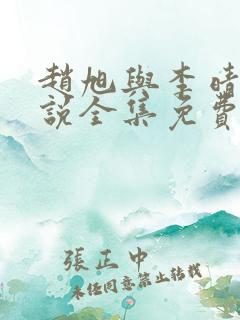 趙旭與李晴
說全集免費
張正中
未经同意禁止转载